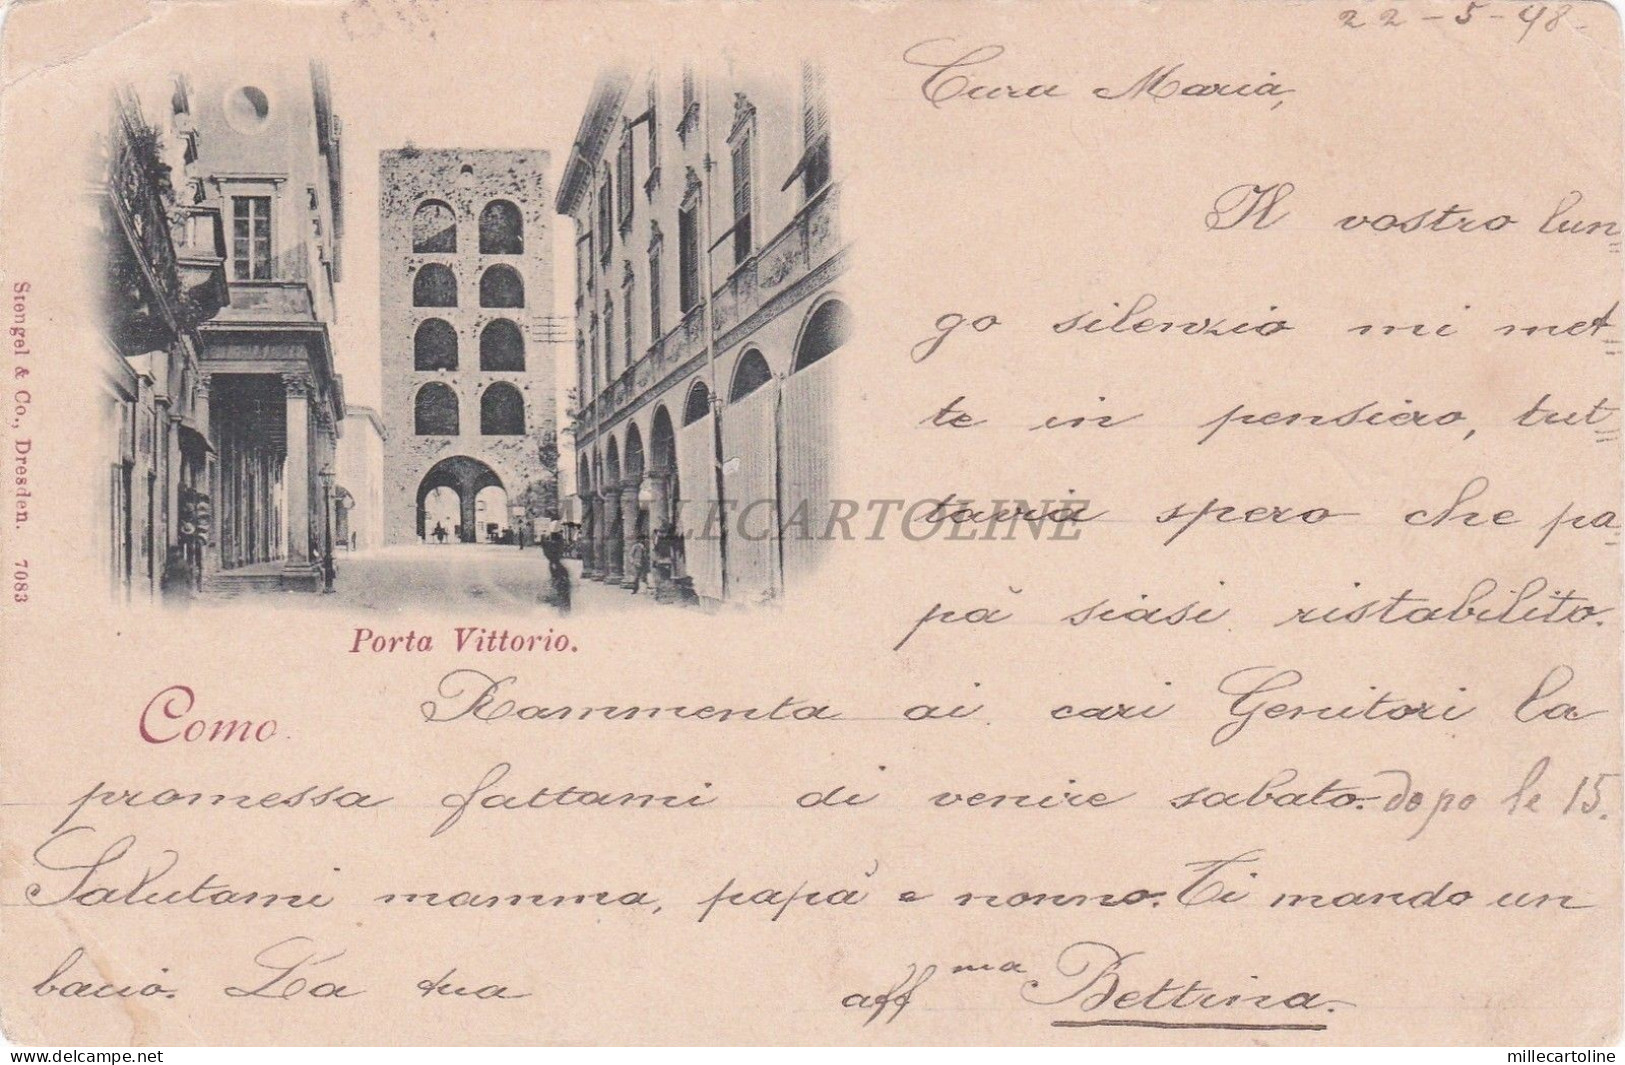 22-5-98-
Cara Maria,
Il vostro lun=
go silenzio mi met=
te in pensiero, tut=
tavia spero che pa=
pà siasi ristabilito.
Stengel & Co., Dresden. 7083
Porta Vittorio.
Como.
Rammenta ai cari Genitori la
promessa fattami di venire sabato. dopo le 15.
Salutami mamma, papà e nonno. Ti mando un
bacio. La tua aff ma Bettina.
MILLECARTOLINE
delcampe.net
millecartoline